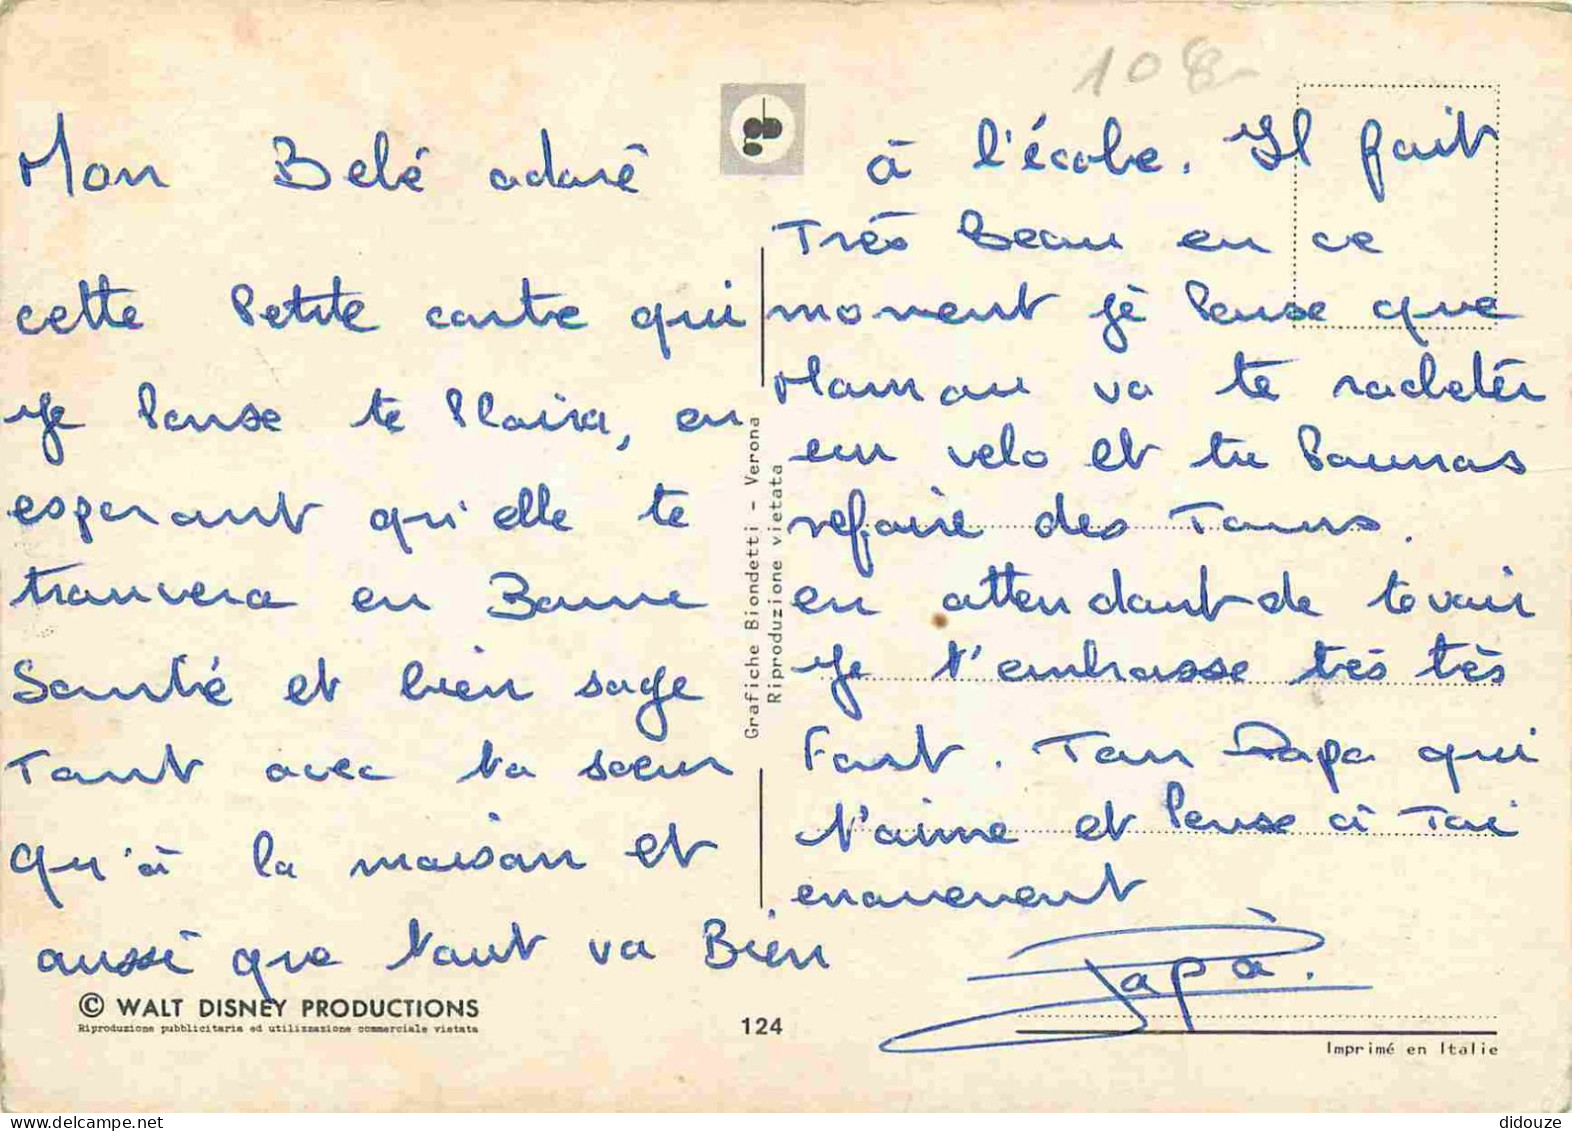 Mon Bebé adoré
cette Petite carte qui
je Pense te Plaira, en
esperant qu'elle te
trouvera en Bonne
Santé et bien sage
Tant avec ta soeur
qu'à la maison et
aussi que tout va Bien
© WALT DISNEY PRODUCTIONS
Riproduzione pubblicitaria ed utilizzazione commerciale vietata
Grafiche Biondetti - Verona
Riproduzione vietata
124
108
à l'école. Il fait
Très Beau en ce
moment je Pense que
Maman va te racheter
un velo et tu Pourras
refaire des Tours.
en attendant de te voir
je t'embrasse très très
Fort. Ton Papa qui
t'aime et Pense à Toi
enormement
Papa.
Imprimé en Italie
didouze